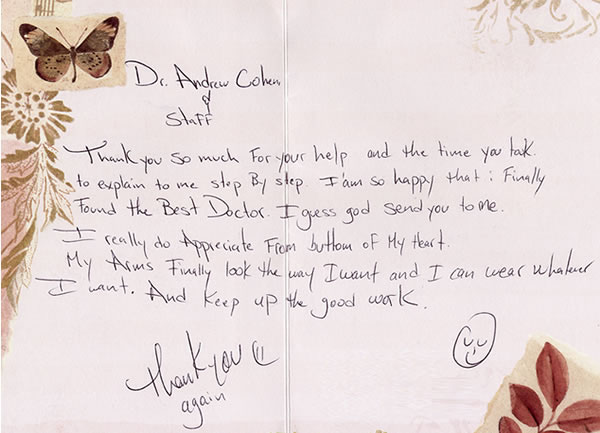 Dr. Andrew Cohen
&
Staff
Thank you so much For your help and the time you took
to explain to me step By step. I'am so happy that i Finally
Found the Best Doctor. I guess god send you to me.
I really do Appreciate From buttom of My Heart.
My Arms Finally look the way I want and I can wear whatever
I want. And keep up the good work.
thank you
again